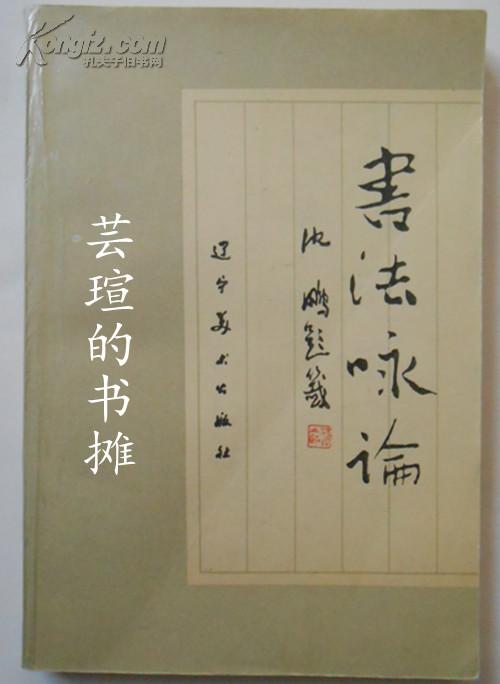 Kongfz.com
孔夫子旧书网
書法咏論
沈鹏题籖
辽宁美术出版社
芸瑄的书摊